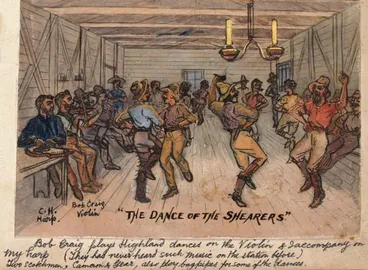 C.H.
Harp.
Bob Craig
Violin
"THE DANCE OF THE SHEARERS"
Bob Craig plays Highland dances on the Violin & I accompany on
my harp (They had never heard such music on the station before)
Two scotchmen, Cameron & Gear, also play bagpipes for some of the dances.